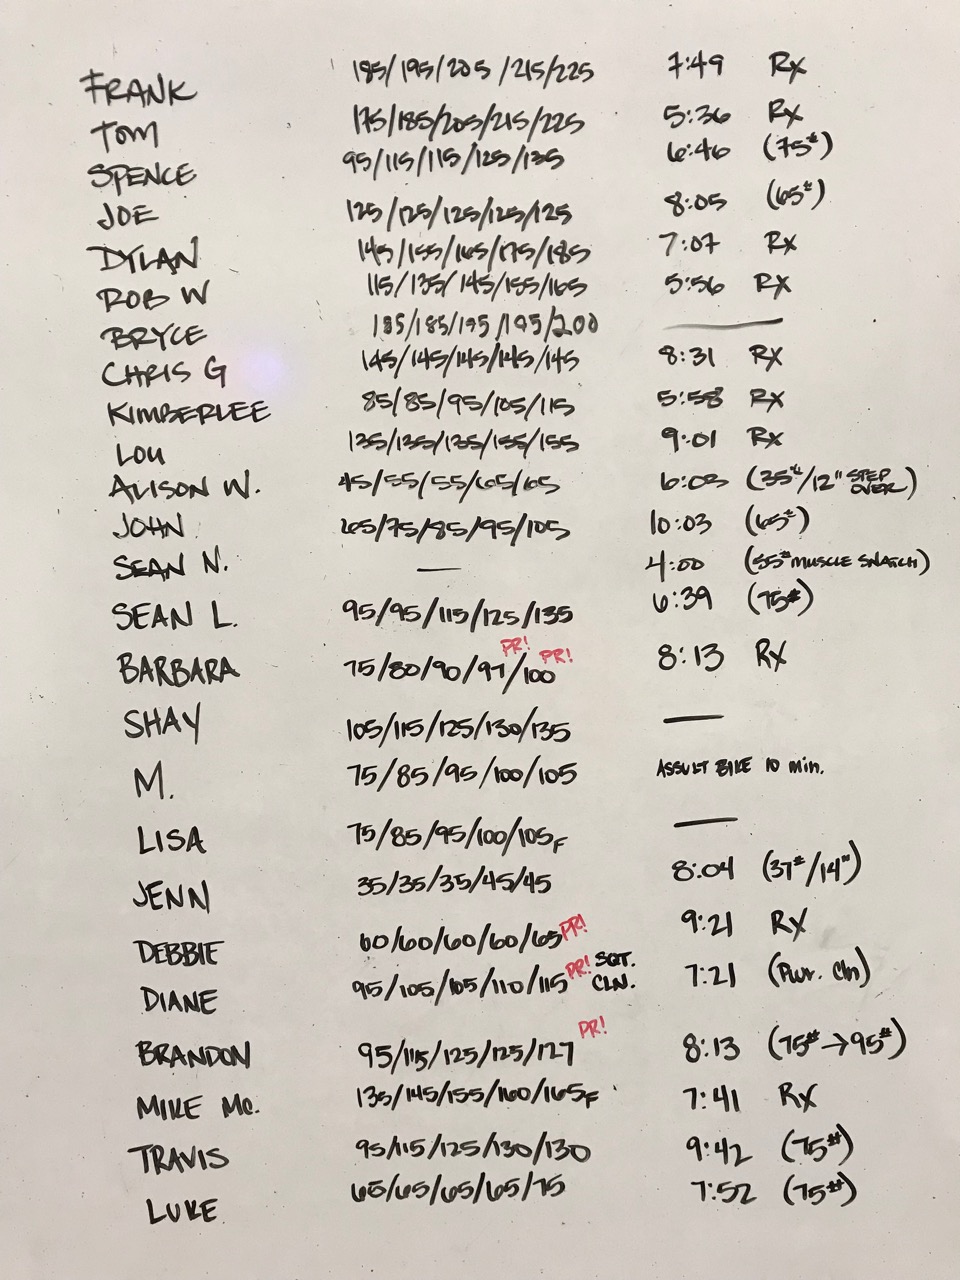 FRANK 185/195/205/215/225 7:49 Rx
TOM 175/185/205/215/225 5:36 Rx
SPENCE 95/115/115/125/135 6:46 (75#)
JOE 125/125/125/125/125 8:05 (65#)
DYLAN 145/155/165/175/185 7:07 Rx
ROB W 115/135/145/155/165 5:56 Rx
BRYCE 185/185/195/195/200 —
CHRIS G 145/145/145/145/145 8:31 Rx
KIMBERLEE 85/85/95/105/115 5:58 Rx
LOU 135/135/135/155/155 9:01 Rx
ALISON W. 45/55/55/65/65 6:03 (35#/12" STEP OVER)
JOHN 65/75/85/95/105 10:03 (65#)
SEAN N. — 4:00 (55# MUSCLE SNATCH)
SEAN L. 95/95/115/125/135 6:39 (75#)
BARBARA 75/80/90/97 PR!/100 PR! 8:13 Rx
SHAY 105/115/125/130/135 —
M. 75/85/95/100/105 ASSULT BIKE 10 min.
LISA 75/85/95/100/105F —
JENN 35/35/35/45/45 8:04 (37#/14")
DEBBIE 60/60/60/60/65 PR! 9:21 Rx
DIANE 95/105/105/110/115 PR! SQT. CLN. 7:21 (Pwr. Cln)
BRANDON 95/115/125/125/127 PR! 8:13 (75#→95#)
MIKE Mc. 135/145/155/160/165F 7:41 Rx
TRAVIS 95/115/125/130/130 9:42 (75#)
LUKE 65/65/65/65/75 7:52 (75#)